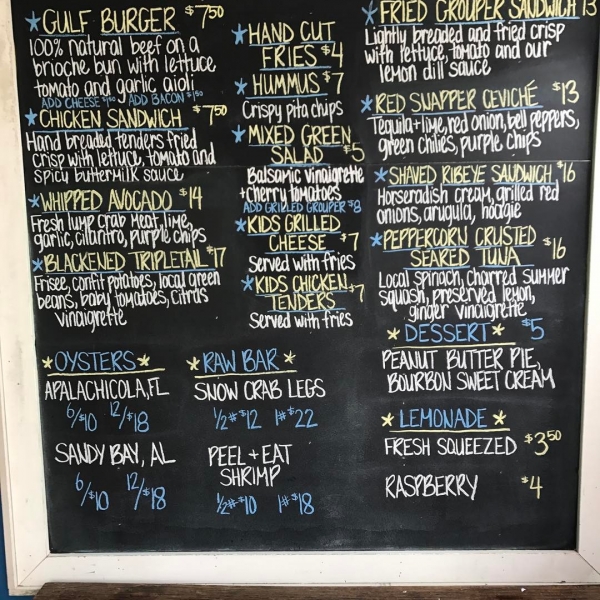 GULF BURGER $7.50
100% natural beef on a
brioche bun with lettuce,
tomato and garlic aioli
ADD CHEESE $1.50 ADD BACON $1.50
CHICKEN SANDWICH $7.50
Hand breaded tenders fried
crisp with lettuce, tomato and
spicy buttermilk sauce
WHIPPED AVOCADO $14
Fresh lump crab meat, lime,
garlic, cilantro, purple chips
BLACKENED TRIPLETAIL $17
Frisee, confit potatoes, local green
beans, baby tomatoes, citrus
vinaigrette
OYSTERS
APALACHICOLA, FL
6/$10 12/$18
SANDY BAY, AL
6/$10 12/$18
HAND CUT
FRIES $4
HUMMUS $7
Crispy pita chips
MIXED GREEN
SALAD $5
Balsamic vinaigrette
+ cherry tomatoes
ADD GRILLED GROUPER $8
KIDS GRILLED
CHEESE $7
Served with fries
KIDS CHICKEN
TENDERS $7
Served with fries
RAW BAR
SNOW CRAB LEGS
1/2# $12 1# $22
PEEL + EAT
SHRIMP
1/2# $10 1# $18
FRIED GROUPER SANDWICH 13
Lightly breaded and fried crisp
with lettuce, tomato and our
lemon dill sauce
RED SNAPPER CEVICHÉ $13
Tequila + lime, red onion, bell peppers,
green chilies, purple chips
SHAVED RIBEYE SANDWICH $16
Horseradish cream, grilled red
onions, arugula, hoagie
PEPPERCORN CRUSTED
SEARED TUNA $16
Local spinach, charred summer
squash, preserved lemon,
ginger vinaigrette
DESSERT $5
PEANUT BUTTER PIE,
BOURBON SWEET CREAM
LEMONADE
FRESH SQUEEZED $3.50
RASPBERRY $4